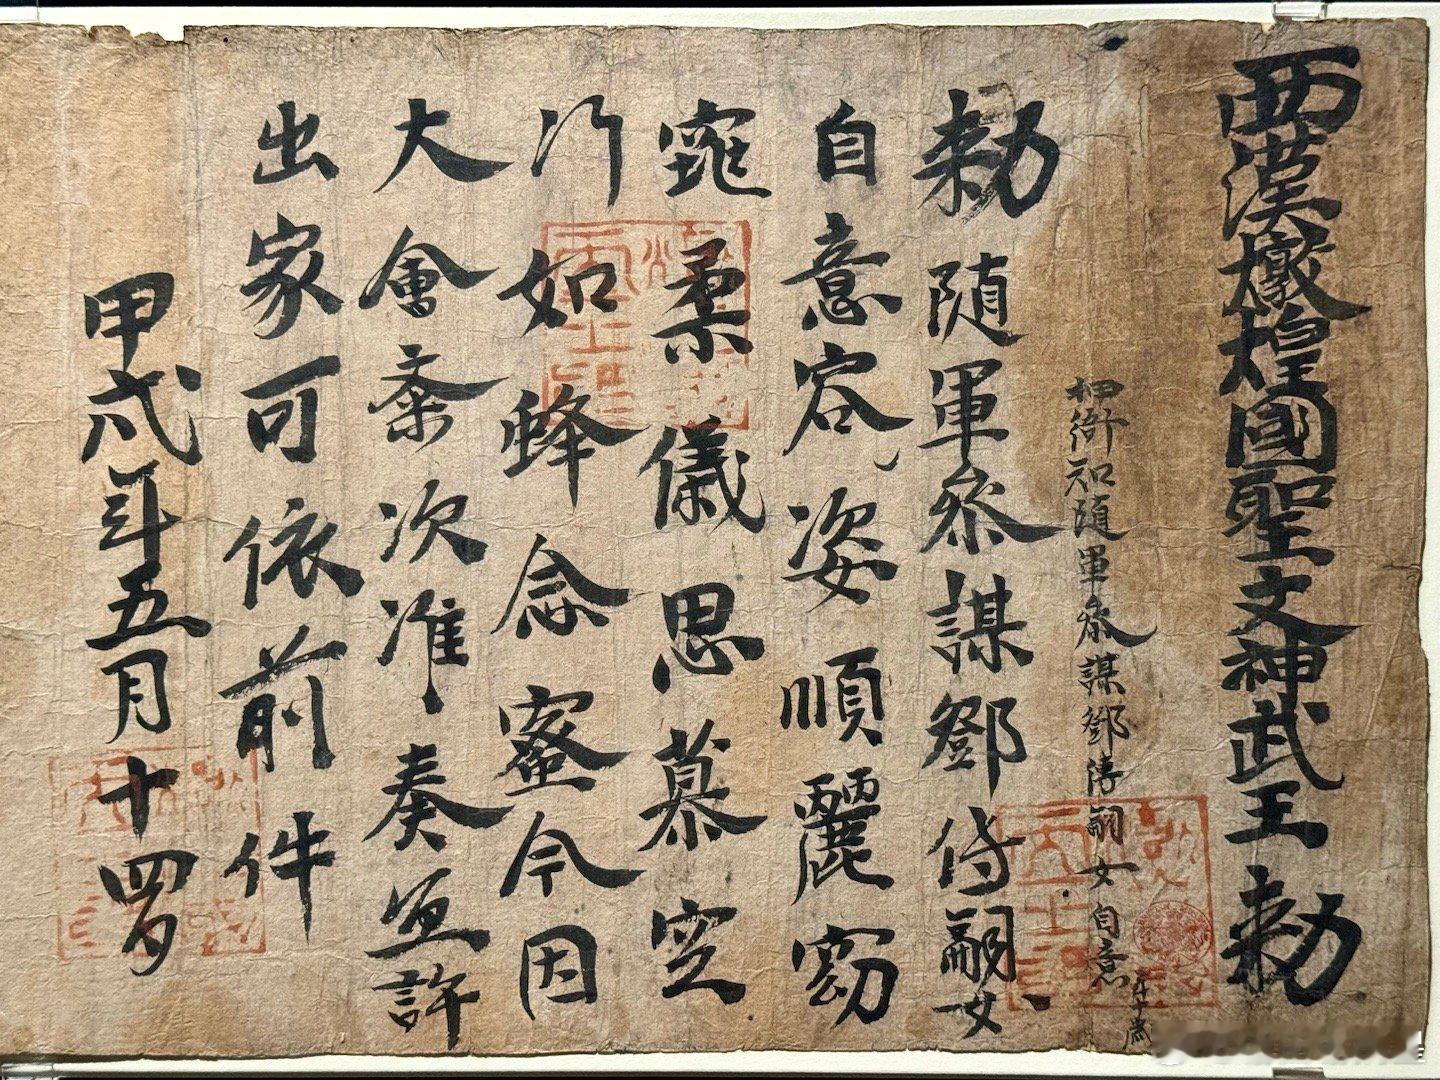 西漢燉煌國聖文神武王勑
押衙知随軍叅謀鄧傳嗣女自意年十歲
勑随軍叅謀鄧傳嗣女
自意容姿順麗窈
窕柔儀思慕空
门如蜂念蜜今因
大會齋次准奏宜許
出家可依前件
甲戌年五月十四日